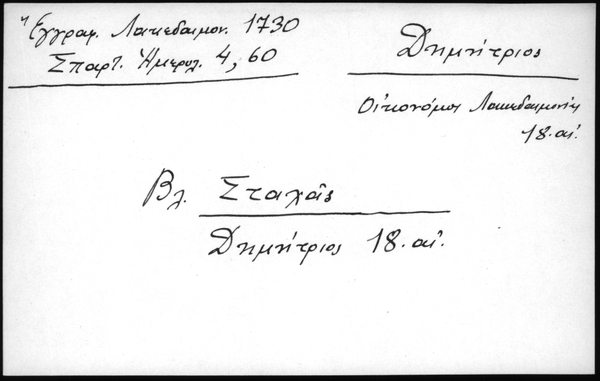 Ἐγγραφ. Λακεδαιμον. 1730
Σπαρτ. Ἡμερολ. 4, 60
Δημήτριος
Οἰκονόμος Λακεδαιμονίας
18. αἰ.
Βλ. Σταχᾶς
Δημήτριος 18. αἰ.